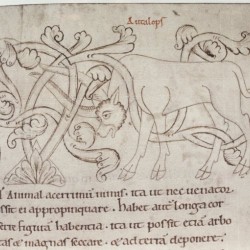 Antalops
Animal acerrimum nimis. ita ut nec venator
possit ei appropinquare. habet autē longa cor
figurā habentia. ita ut possit etiā arbo
magnas secare. & ad terrā deponere.